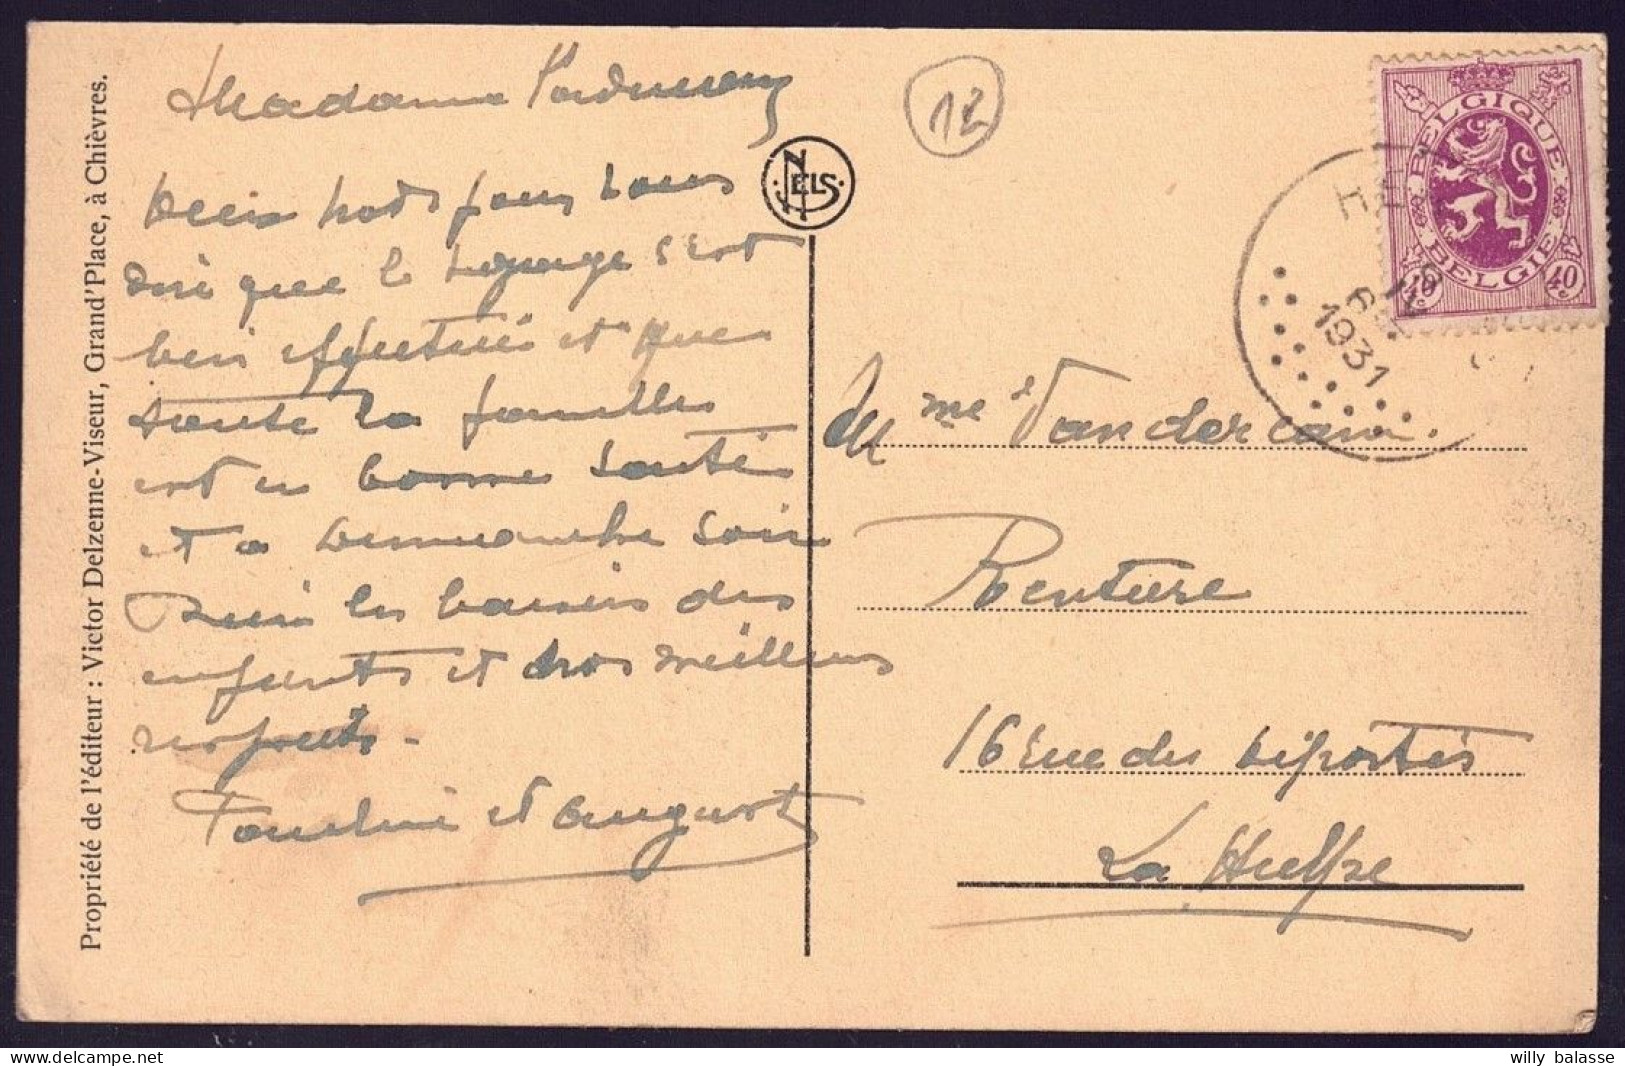 Propriété de l'éditeur : Victor Delzenne-Viseur, Grand'Place, à Chièvres.
Madame
mots pour vous
dire que le voyage s'est
bien effectué et que
toute la famille
est en bonne santé
et a Demmanche soir
les baisers des
enfants et nos meilleurs
respects.
Pauline et August
NELS
12
BELGIQUE
BELGIE
40c 40c
1931
Mme Vandercam.
Rentière
16 rue des déportés
La Hulpe
willy balasse